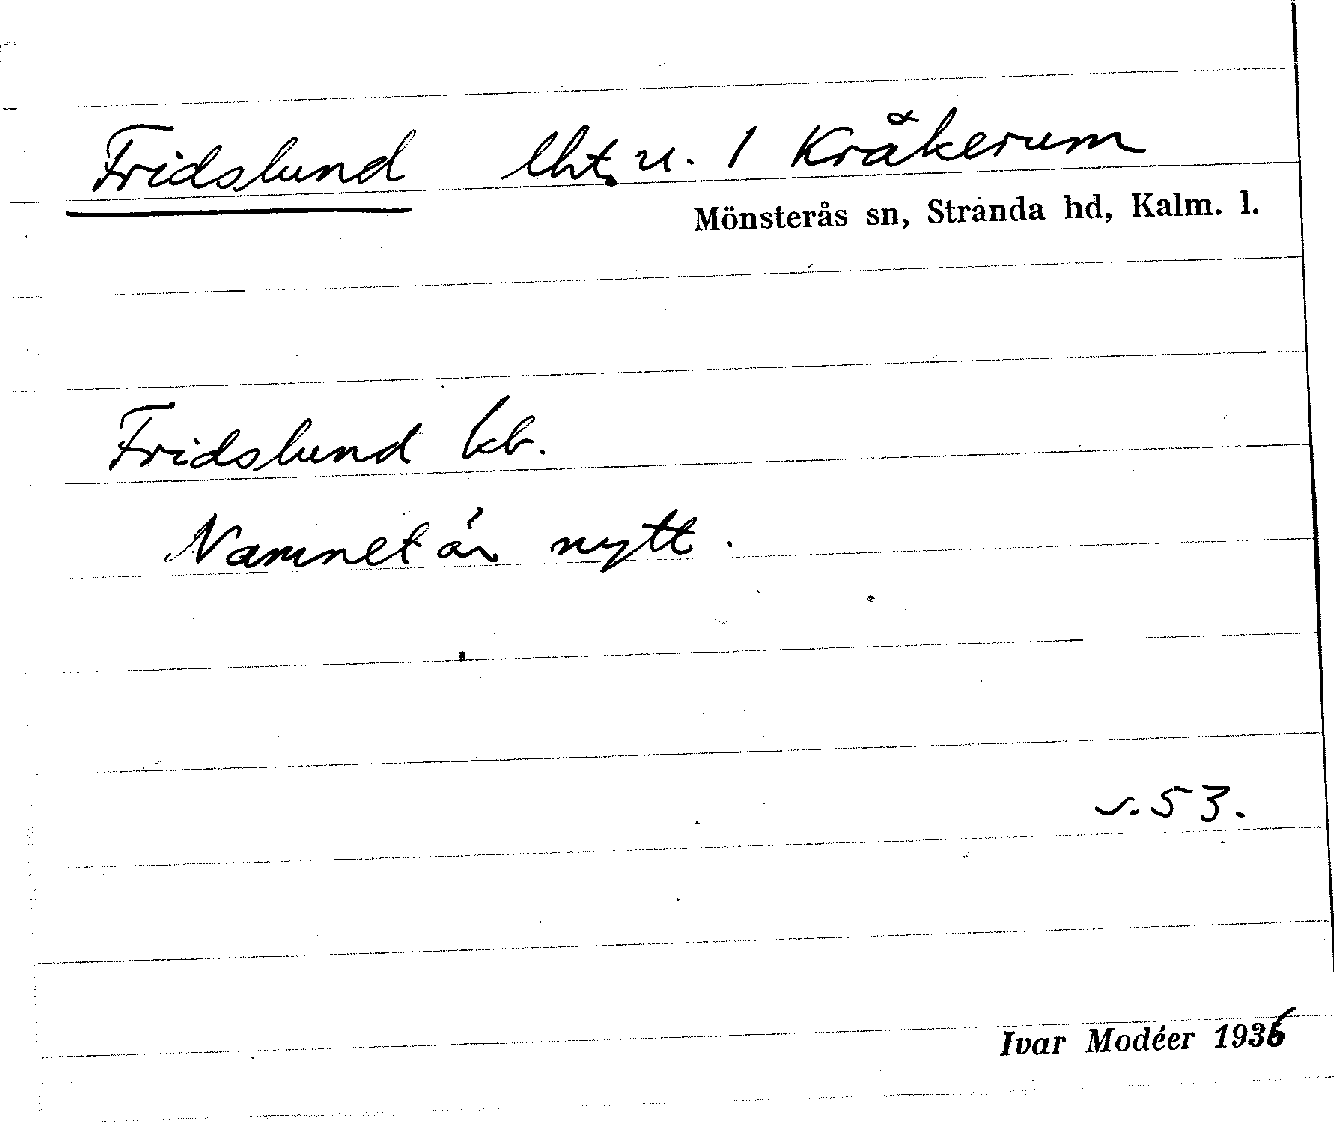 Fridslund lht. u. 1 Kråkerum
Mönsterås sn, Stranda hd, Kalm. l.
Fridslund kb.
Namnet är nytt.
s. 53.
Ivar Modéer 1936